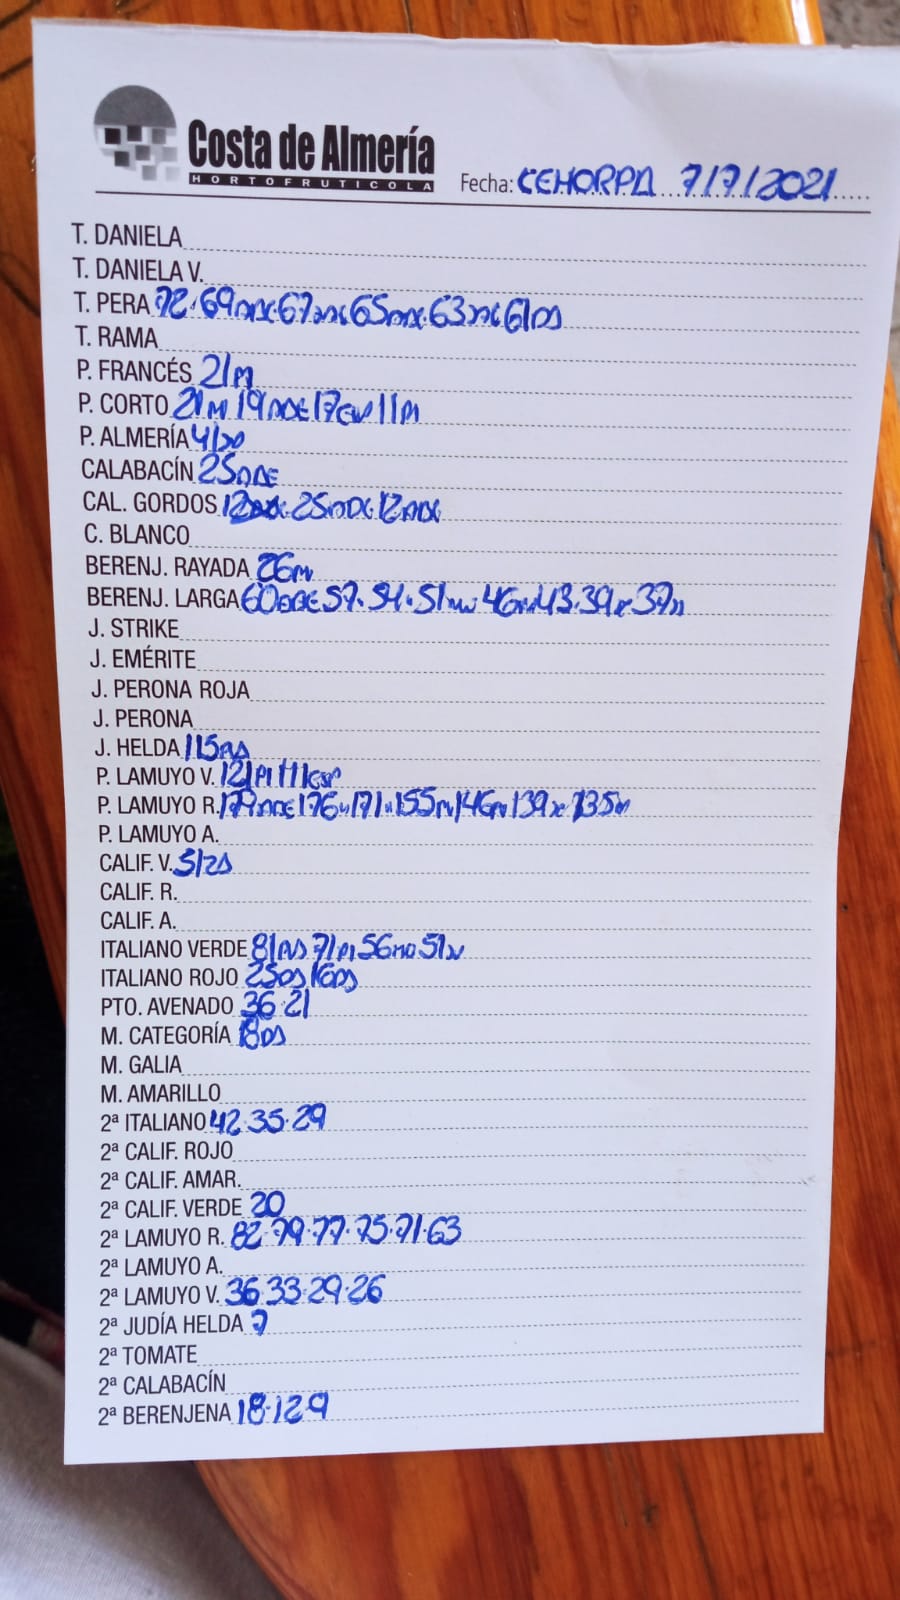 Costa de Almería
HORTOFRUTICOLA
Fecha: CEHORPA 7/7/2021
T. DANIELA
T. DANIELA V.
T. PERA 72·69 67 65 63 61
T. RAMA
P. FRANCÉS 21M
P. CORTO 21M 19 17 11M
P. ALMERÍA
CALABACÍN 25
CAL. GORDOS 25 12
C. BLANCO
BERENJ. RAYADA 26M
BERENJ. LARGA 60 57·54·51 46 43·39 37
J. STRIKE
J. EMÉRITE
J. PERONA ROJA
J. PERONA
J. HELDA 115
P. LAMUYO V. 121 111
P. LAMUYO R. 179 176 171 155 146 139 135
P. LAMUYO A.
CALIF. V.
CALIF. R.
CALIF. A.
ITALIANO VERDE 81 71 56 51
ITALIANO ROJO 25 16
PTO. AVENADO 36·21
M. CATEGORÍA 18
M. GALIA
M. AMARILLO
2ª ITALIANO 42·35·29
2ª CALIF. ROJO
2ª CALIF. AMAR.
2ª CALIF. VERDE 20
2ª LAMUYO R. 82·79·77·75·71·63
2ª LAMUYO A.
2ª LAMUYO V. 36·33·29·26
2ª JUDÍA HELDA 7
2ª TOMATE
2ª CALABACÍN
2ª BERENJENA 18·12·9